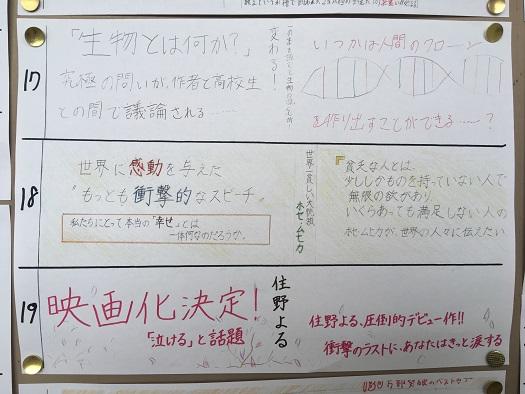 17
「生物とは何か？」
究極の問いが、作者と高校生
との間で議論される……
変わる！
いつかは人間のクローン
を作り出すことができる……？
18
世界に感動を与えた
"もっとも衝撃的なスピーチ"
私たちにとって本当の「幸せ」とは
一体何なのだろうか。
世界一貧しい大統領
ホセ・ムヒカ
貧乏な人とは、
少ししかものを持っていない人で
無限の欲があり、
いくらあっても満足しない人の
ホセ・ムヒカが、世界の人々に伝えたい
19
映画化決定！
「泣ける」と話題
住野よる
住野よる、圧倒的デビュー作!!
衝撃のラストに、あなたはきっと涙する